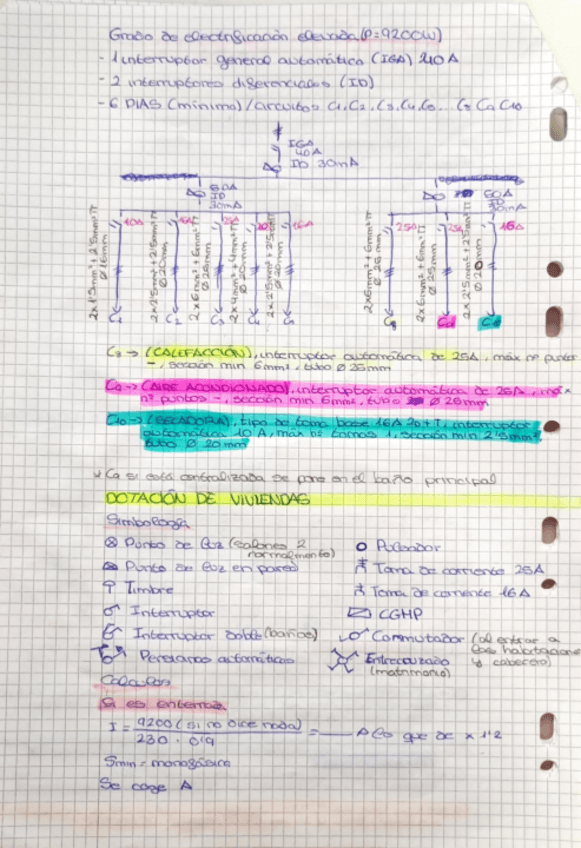 Grado de electrificación elevada (P=9200W)
- 1 interruptor general automático (IGA) 40A
- 2 interruptores diferenciales (ID)
- 6 PIAS (mínimo) / circuitos C1, C2, C3, C4, C5... C8 C9 C10
IGA
40A
ID 30mA
ID
30mA
ID
30mA
10A
16A
25A
20A
16A
25A
25A
16A
2x1'5mm²+2'5mm²π
Ø16mm
2x2'5mm²+2'5mm²π
Ø20mm
2x6mm²+6mm²π
Ø25mm
2x4mm²+4mm²π
Ø20mm
2x2'5mm²+2'5mm²π
Ø20mm
2x6mm²+6mm²π
Ø25mm
2x6mm²+6mm²π
Ø25mm
2x2'5mm²+2'5mm²π
Ø20mm
C1 C2 C3 C4 C5 C8 C9 C10
C8 → (CALEFACCIÓN), interruptor automático de 25A, máx nº puntos
-, sección min 6mm², tubo Ø 25mm
C9 → (AIRE ACONDIONADO), interruptor automático de 25A, máx
nº puntos -, sección min 6mm², tubo Ø 25mm
C10 → (SECADORA), tipo de toma base 16A 2p+T, interruptor
automático 10A, máx nº tomas 1, sección min 2'5mm²
tubo Ø 20mm
C9 si está centralizada se pone en el baño principal
DOTACIÓN DE VIVIENDAS
Simbología
Punto de luz (salones 2
normalmente)
Pulsador
Punto de luz en pared
Toma de corriente 25A
Timbre
Toma de corriente 16A
Interruptor
CGMP
Interruptor doble (baños)
Conmutador (al entrar a
las habitaciones
y cabecero)
Persianas automáticas
Entrecruzado
(matrimonio)
Cálculos
Si es enterrada
I = 9200 (si no dice nada) / 230 · 0'9 = ___ A lo que de x 1'2
Smin = monofásica
Se coge A